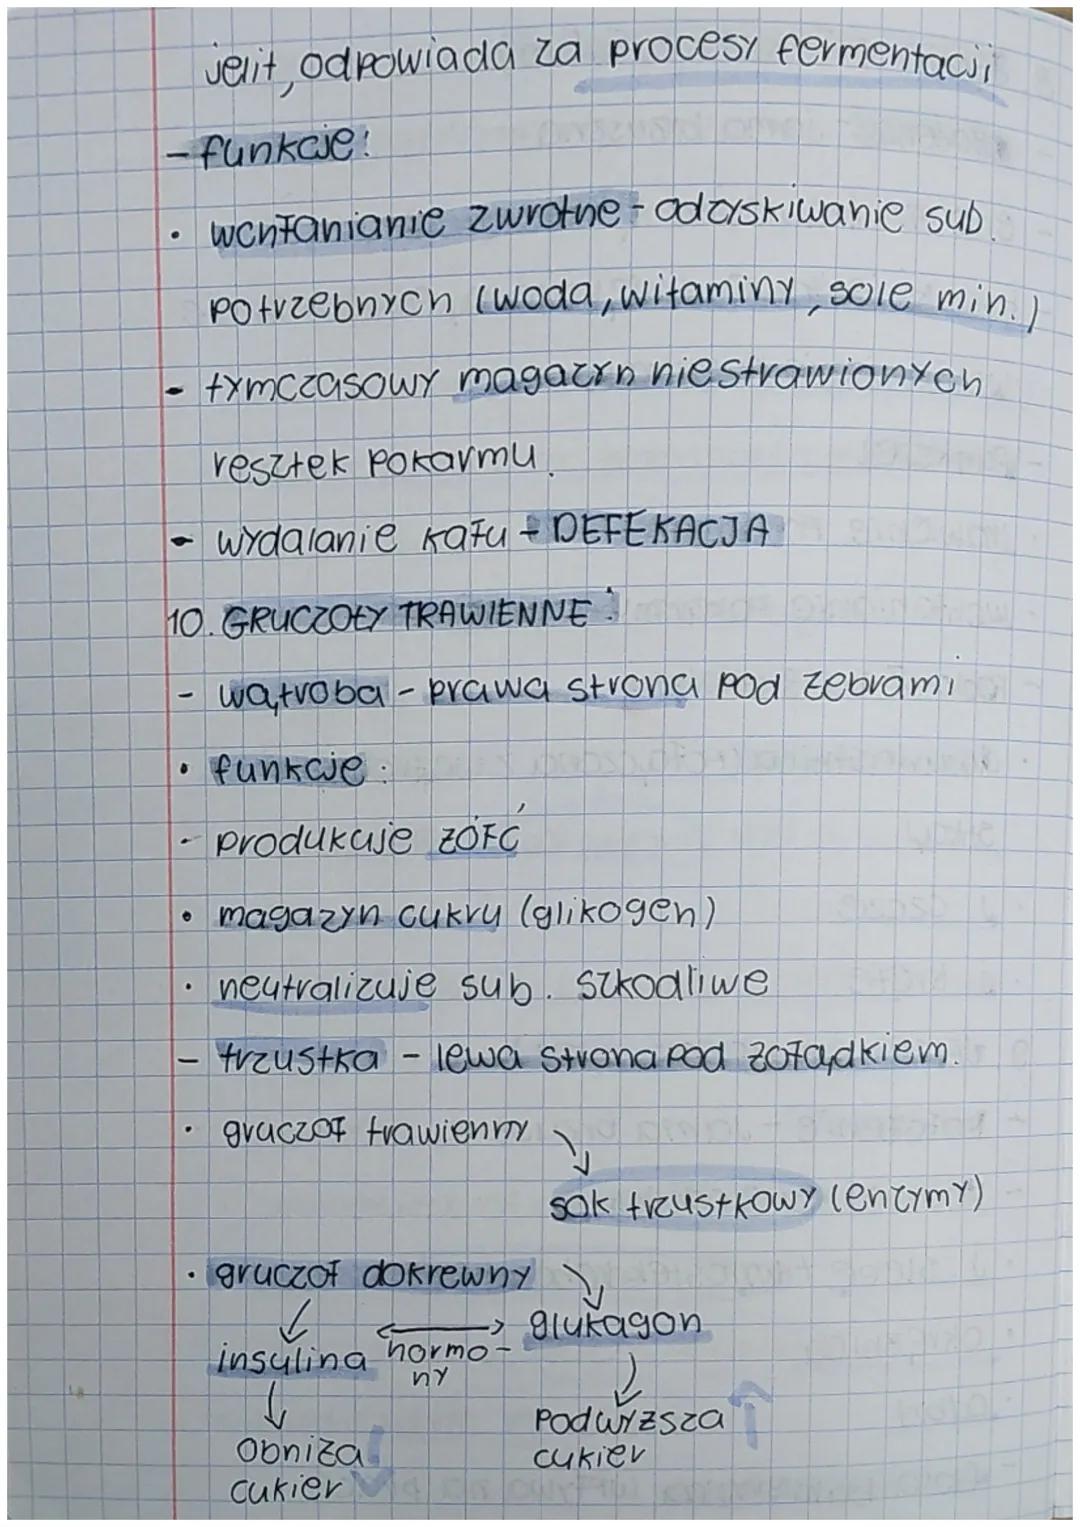 jelit, odpowiada za procesy fermentacji
- funkcje:
• wchłanianie zwrotne - odzyskiwanie sub.
potrzebnych (woda, witaminy, sole min.)
- tymczasowy magazyn niestrawionych
resztek pokarmu.
- wydalanie kału - DEFEKACJA
10. GRUCZOŁY TRAWIENNE:
- wątroba - prawa strona pod żebrami
• funkcje:
- produkuje żółć
• magazyn cukru (glikogen)
• neutralizuje sub. szkodliwe
- trzustka - lewa strona pod żołądkiem.
• gruczoł trawienny ↘
sok trzustkowy (enzymy)
• gruczoł dokrewny ↘
↙ insulina ↔ hormo- glukagon
ny
↓ ↓
obniża ↓ podwyższa ↑
cukier cukier